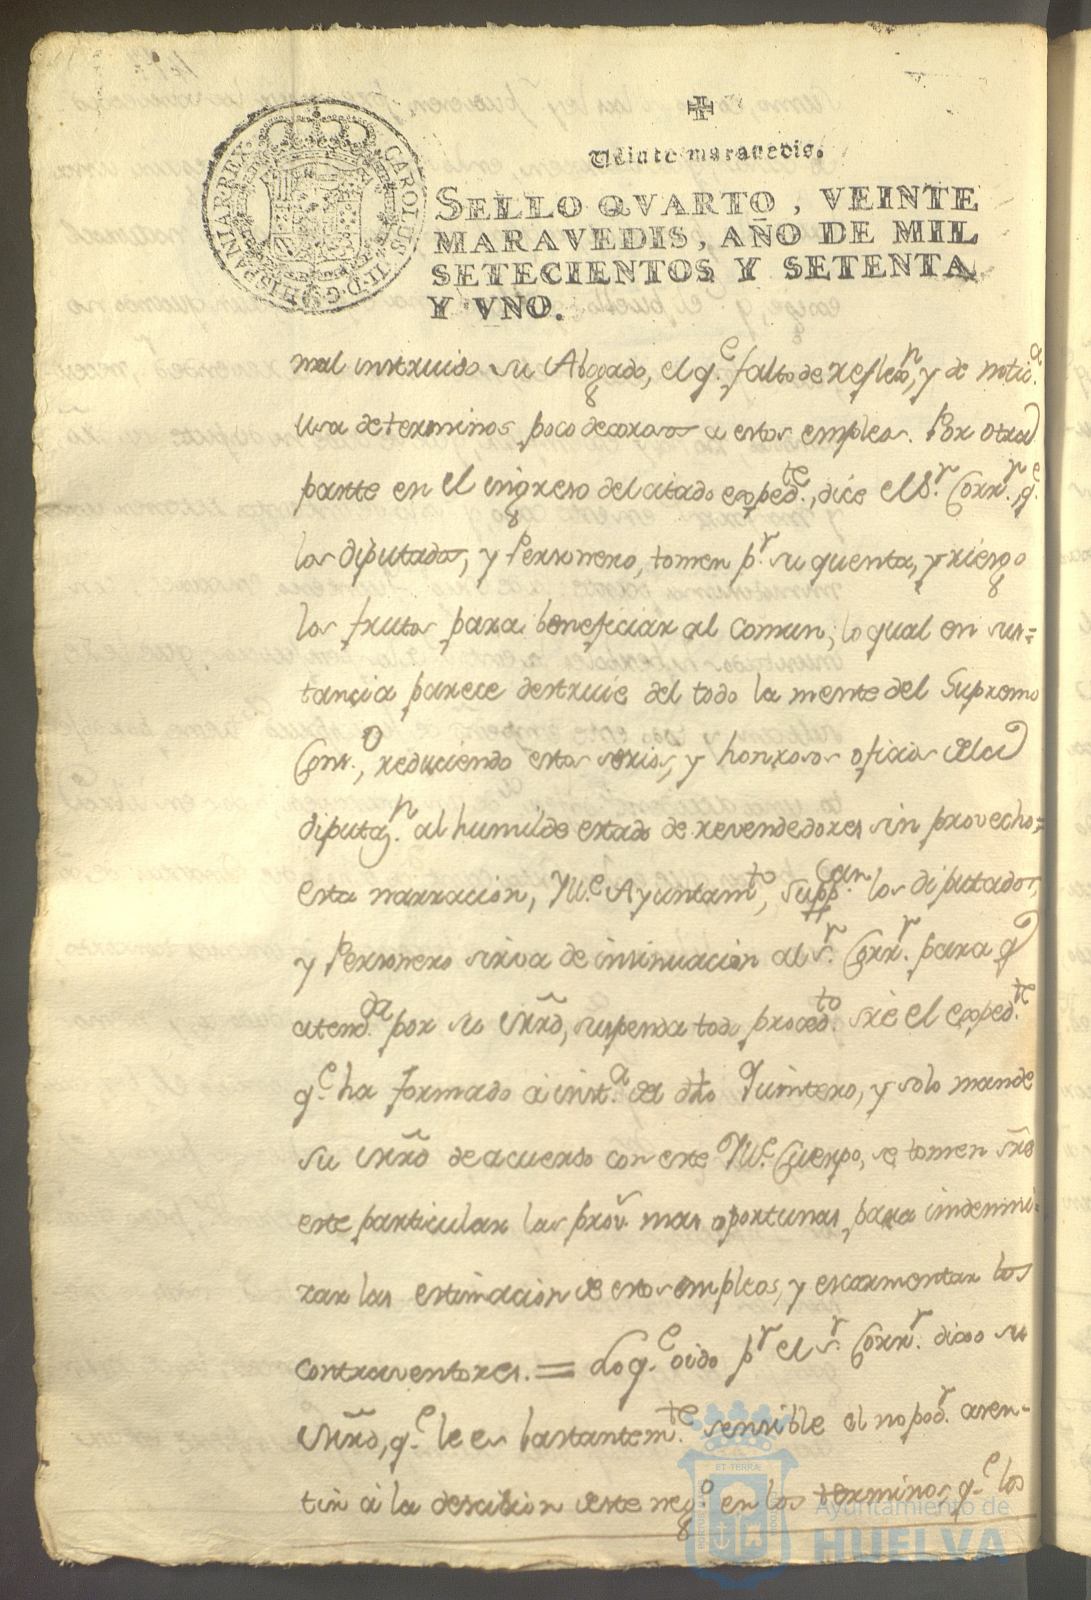 Veinte maravedis.
SELLO QVARTO, VEINTE
MARAVEDIS, AÑO DE MIL
SETECIENTOS Y SETENTA
Y VNO.
CAROLUS III D G HISPANIAR REX
mal instruido su Abogado, el q.e falto de reflex.n, y de notic.a
usa de terminos poco decorosos a estos empleos. Por otra
parte en el ingreso del citado exped.te, dice el S.r Corr.r q.e
los diputados, y Personero, tomen p.r su quenta, y riesgo
los frutos para beneficiar al comun; lo qual en sus=
tancia parece destruie del todo la mente del Supremo
Cons.o, reduciendo estos serios, y honrosos oficios de la
diputaz.n al humilde estado de revendedores sin provecho=
esta narracion, Yll.e Ayuntam.to, supp.can los diputados,
y Personero sirva de insinuacion al S.r Corr.r para q
atend.da por su mrd, suspenda todo proced.to sre el exped.te
q.e ha formado á inst.a de dho Quintero, y solo mande
su mrd de acuerdo con este Yll.e Cuerpo, se tomen sre
este particular las prov.s mas oportunas para indemni-
zar las estimacion de estos empleos, y escarmentar los
contraventores. = Lo q.e oido p.r el S.r Corr.r dixo su
mrd, q.e le es bastantem.te sensible el no pod.r asen-
tir á la decision de este neg.o en los terminos q.e los
Ayuntamiento de
HUELVA